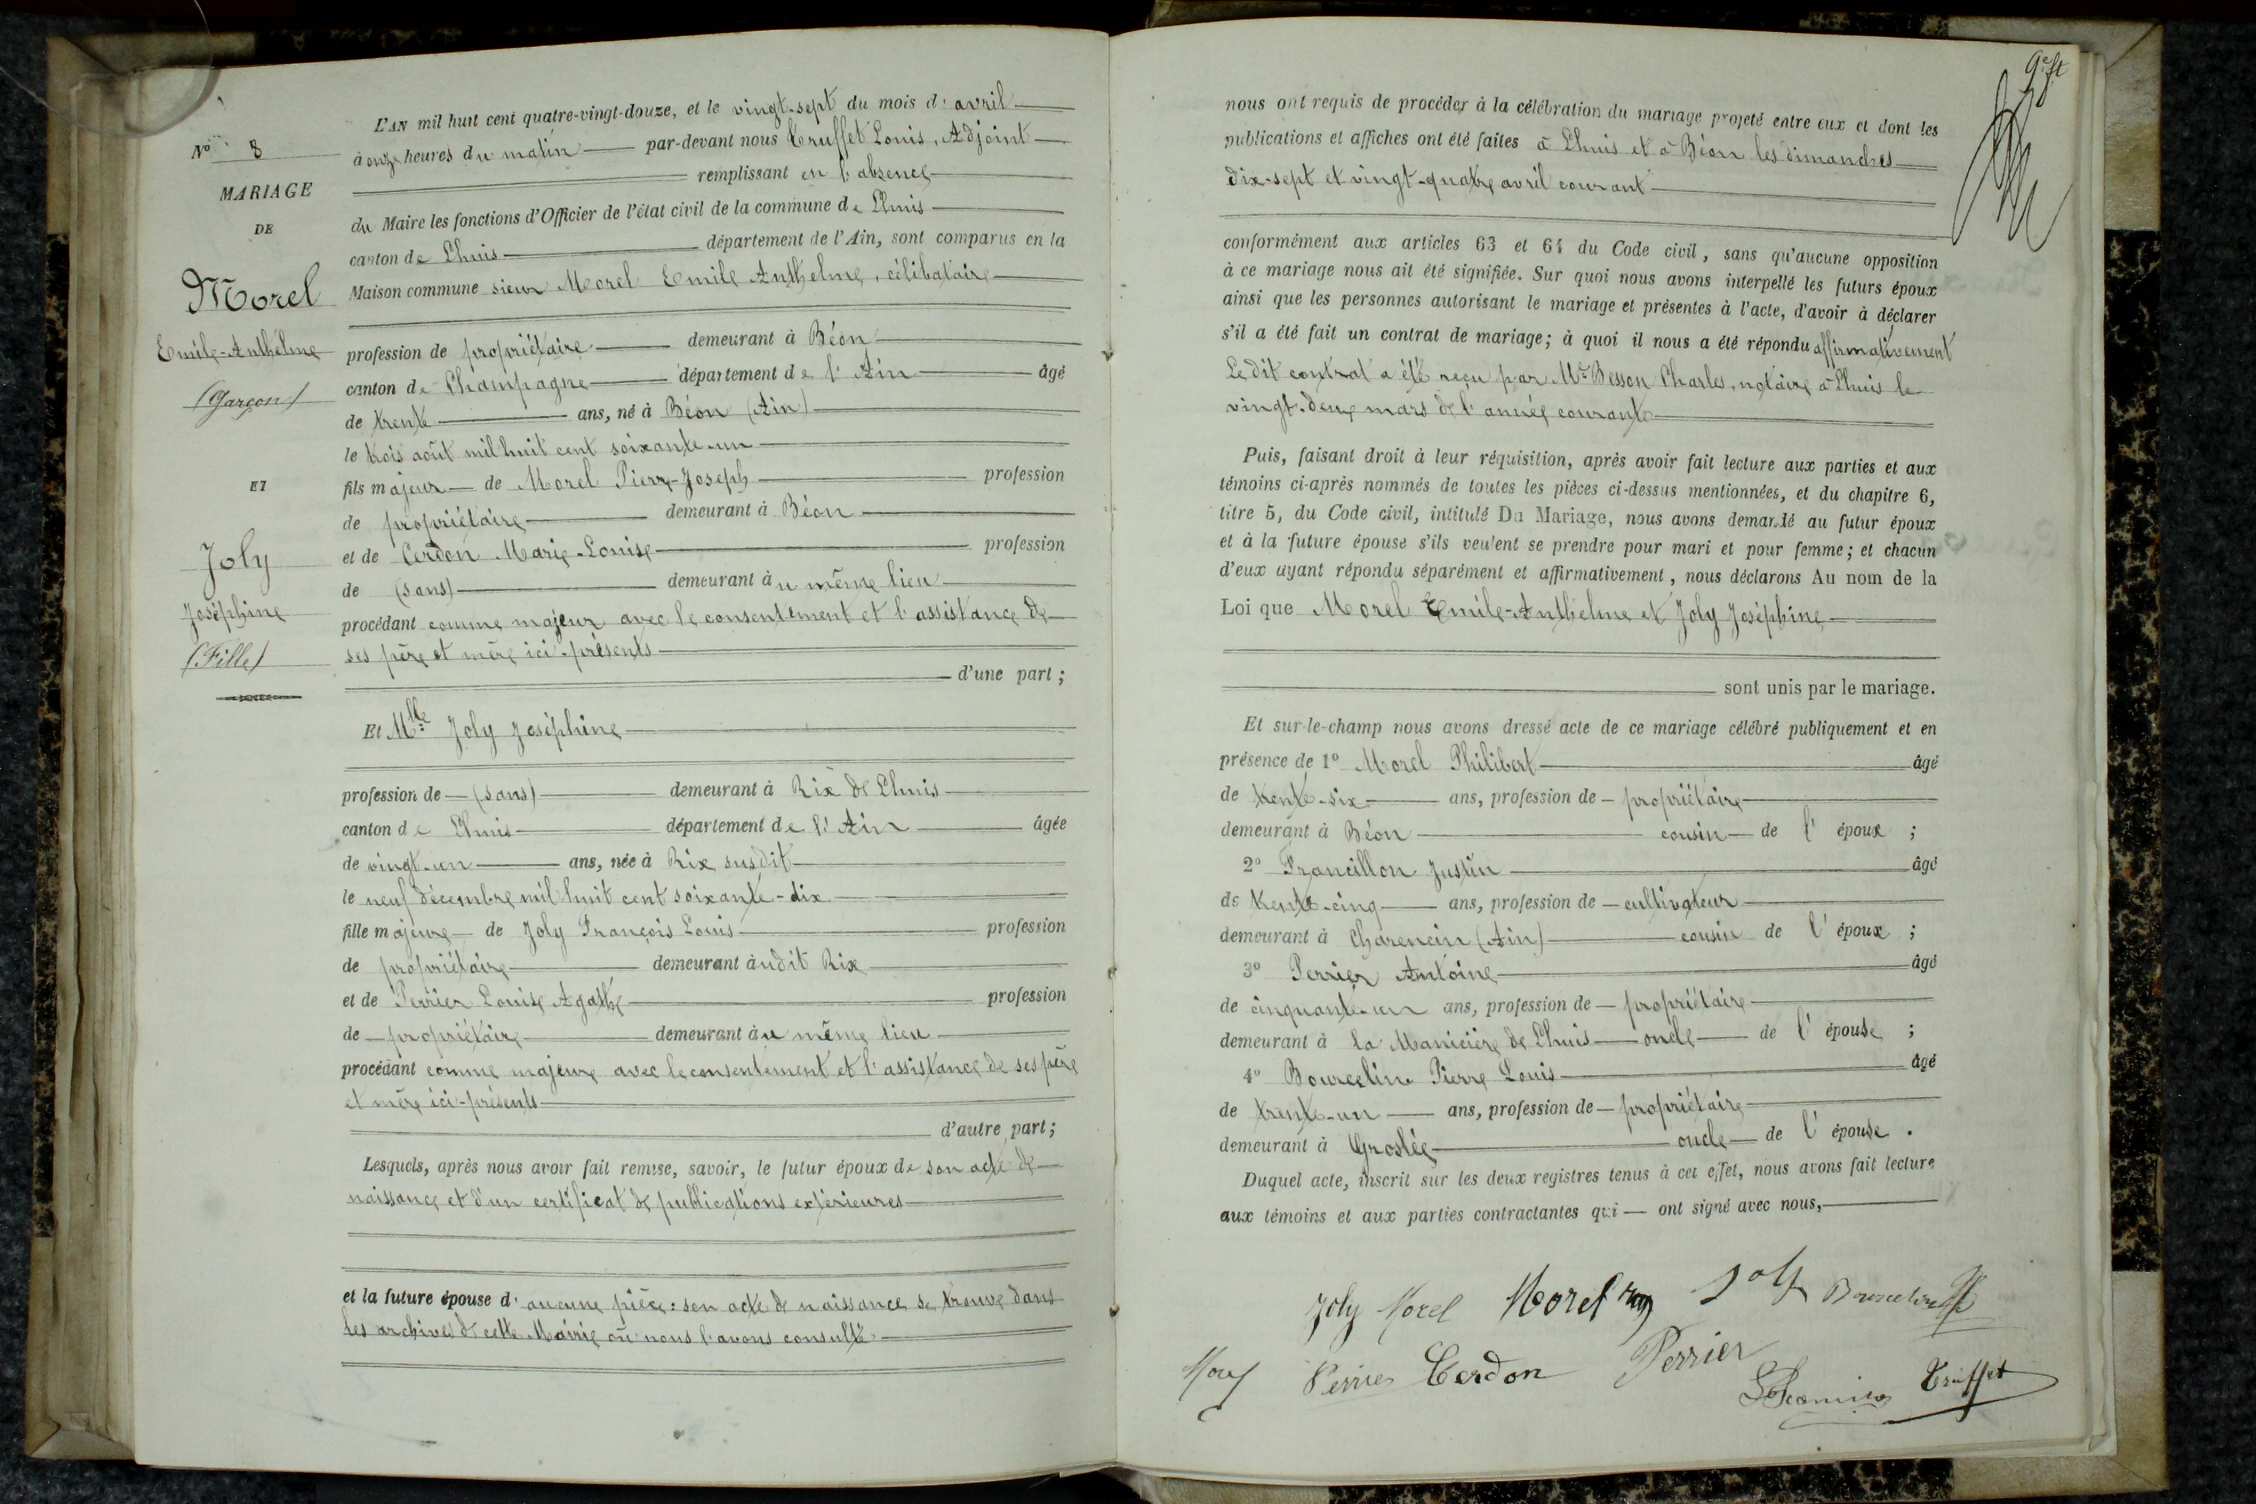 N° 8
MARIAGE
DE
Morel
Emile-Anthelme
(Garçon)
ET
Joly
Joséphine
(Fille)
L'AN mil huit cent quatre-vingt-douze, et le vingt-sept du mois d'avril
à onze heures du matin par-devant nous Truffet Louis, Adjoint
remplissant en l'absence
du Maire les fonctions d'Officier de l'état civil de la commune de Lhuis
canton de Lhuis département de l'Ain, sont comparus en la
Maison commune sieur Morel Emile Anthelme, célibataire
profession de propriétaire demeurant à Béon
canton de Champagne département de l'Ain âgé
de trente ans, né à Béon (Ain)
le trois août mil huit cent soixante-un
fils majeur de Morel Pierre-Joseph profession
de propriétaire demeurant à Béon
et de Cerdon Marie-Louise profession
de (sans) demeurant au même lieu
procédant comme majeur avec le consentement et l'assistance de
ses père et mère ici-présents
d'une part ;
Et Mlle Joly Joséphine
profession de (sans) demeurant à Rix de Lhuis
canton de Lhuis département de l'Ain âgée
de vingt-un ans, née à Rix susdit
le neuf décembre mil huit cent soixante-dix
fille majeure de Joly François Louis profession
de propriétaire demeurant audit Rix
et de Perrier Louise Agathe profession
de propriétaire demeurant au même lieu
procédant comme majeure avec le consentement et l'assistance de ses père
et mère ici-présents
d'autre part ;
Lesquels, après nous avoir fait remise, savoir, le futur époux de son acte de
naissance et d'un certificat de publications extérieures
et la future épouse d'aucune pièce : son acte de naissance se trouve dans
les archives de cette Mairie où nous l'avons consulté
nous ont requis de procéder à la célébration du mariage projeté entre eux et dont les
publications et affiches ont été faites à Lhuis et à Béon les dimanches
dix-sept et vingt-quatre avril courant
conformément aux articles 63 et 64 du Code civil, sans qu'aucune opposition
à ce mariage nous ait été signifiée. Sur quoi nous avons interpellé les futurs époux
ainsi que les personnes autorisant le mariage et présentes à l'acte, d'avoir à déclarer
s'il a été fait un contrat de mariage ; à quoi il nous a été répondu affirmativement
Le dit contrat a été reçu par Me Besson Charles, notaire à Lhuis le
vingt-deux mars de l'année courante
Puis, faisant droit à leur réquisition, après avoir fait lecture aux parties et aux
témoins ci-après nommés de toutes les pièces ci-dessus mentionnées, et du chapitre 6,
titre 5, du Code civil, intitulé Du Mariage, nous avons demandé au futur époux
et à la future épouse s'ils veulent se prendre pour mari et pour femme ; et chacun
d'eux ayant répondu séparément et affirmativement, nous déclarons Au nom de la
Loi que Morel Emile-Anthelme et Joly Joséphine
sont unis par le mariage.
Et sur-le-champ nous avons dressé acte de ce mariage célébré publiquement et en
présence de 1° Morel Philibert âgé
de trente-six ans, profession de propriétaire
demeurant à Béon cousin de l'époux ;
2° Francillon Justin âgé
de trente-cinq ans, profession de cultivateur
demeurant à Charencin (Ain) cousin de l'époux ;
3° Perrier Antoine âgé
de cinquante-un ans, profession de propriétaire
demeurant à la Manicière de Lhuis oncle de l'épouse ;
4° Bourcelin Pierre Louis âgé
de trente-un ans, profession de propriétaire
demeurant à Groslée oncle de l'épouse.
Duquel acte, inscrit sur les deux registres tenus à cet effet, nous avons fait lecture
aux témoins et aux parties contractantes qui ont signé avec nous,
Joly Morel Morel Joly Bourcelin
Morel Perrier Cerdon Perrier
Truffet